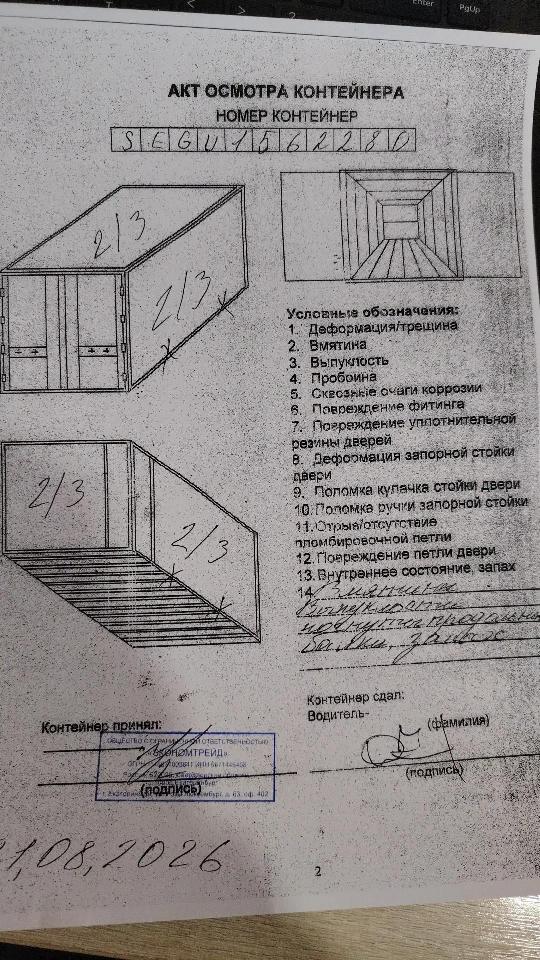 АКТ ОСМОТРА КОНТЕЙНЕРА
НОМЕР КОНТЕЙНЕР
SEGU1562280
2/3
2/3
Условные обозначения:
1. Деформация/трещина
2. Вмятина
3. Выпуклость
4. Пробоина
5. Сквозные очаги коррозии
6. Повреждение фитинга
7. Повреждение уплотнительной
резины дверей
8. Деформация запорной стойки
двери
9. Поломка кулачка стойки двери
10. Поломка ручки запорной стойки
11. Отрыв/отсутствие
пломбировочной петли
12. Повреждение петли двери
13. Внутреннее состояние, запах
14. Вмятины
Выпуклости
погнутии продольн
балки, запах
2/3
2/3
Контейнер сдал:
Водитель-
(фамилия)
(подпись)
Контейнер принял:
ОБЩЕСТВО С ОГРАНИЧЕННОЙ ОТВЕТСТВЕННОСТЬЮ
«ЭКОНОМТРЕЙД»
(подпись)
д. 63, оф. 402
1,08,2026
2
Enter
PgUp